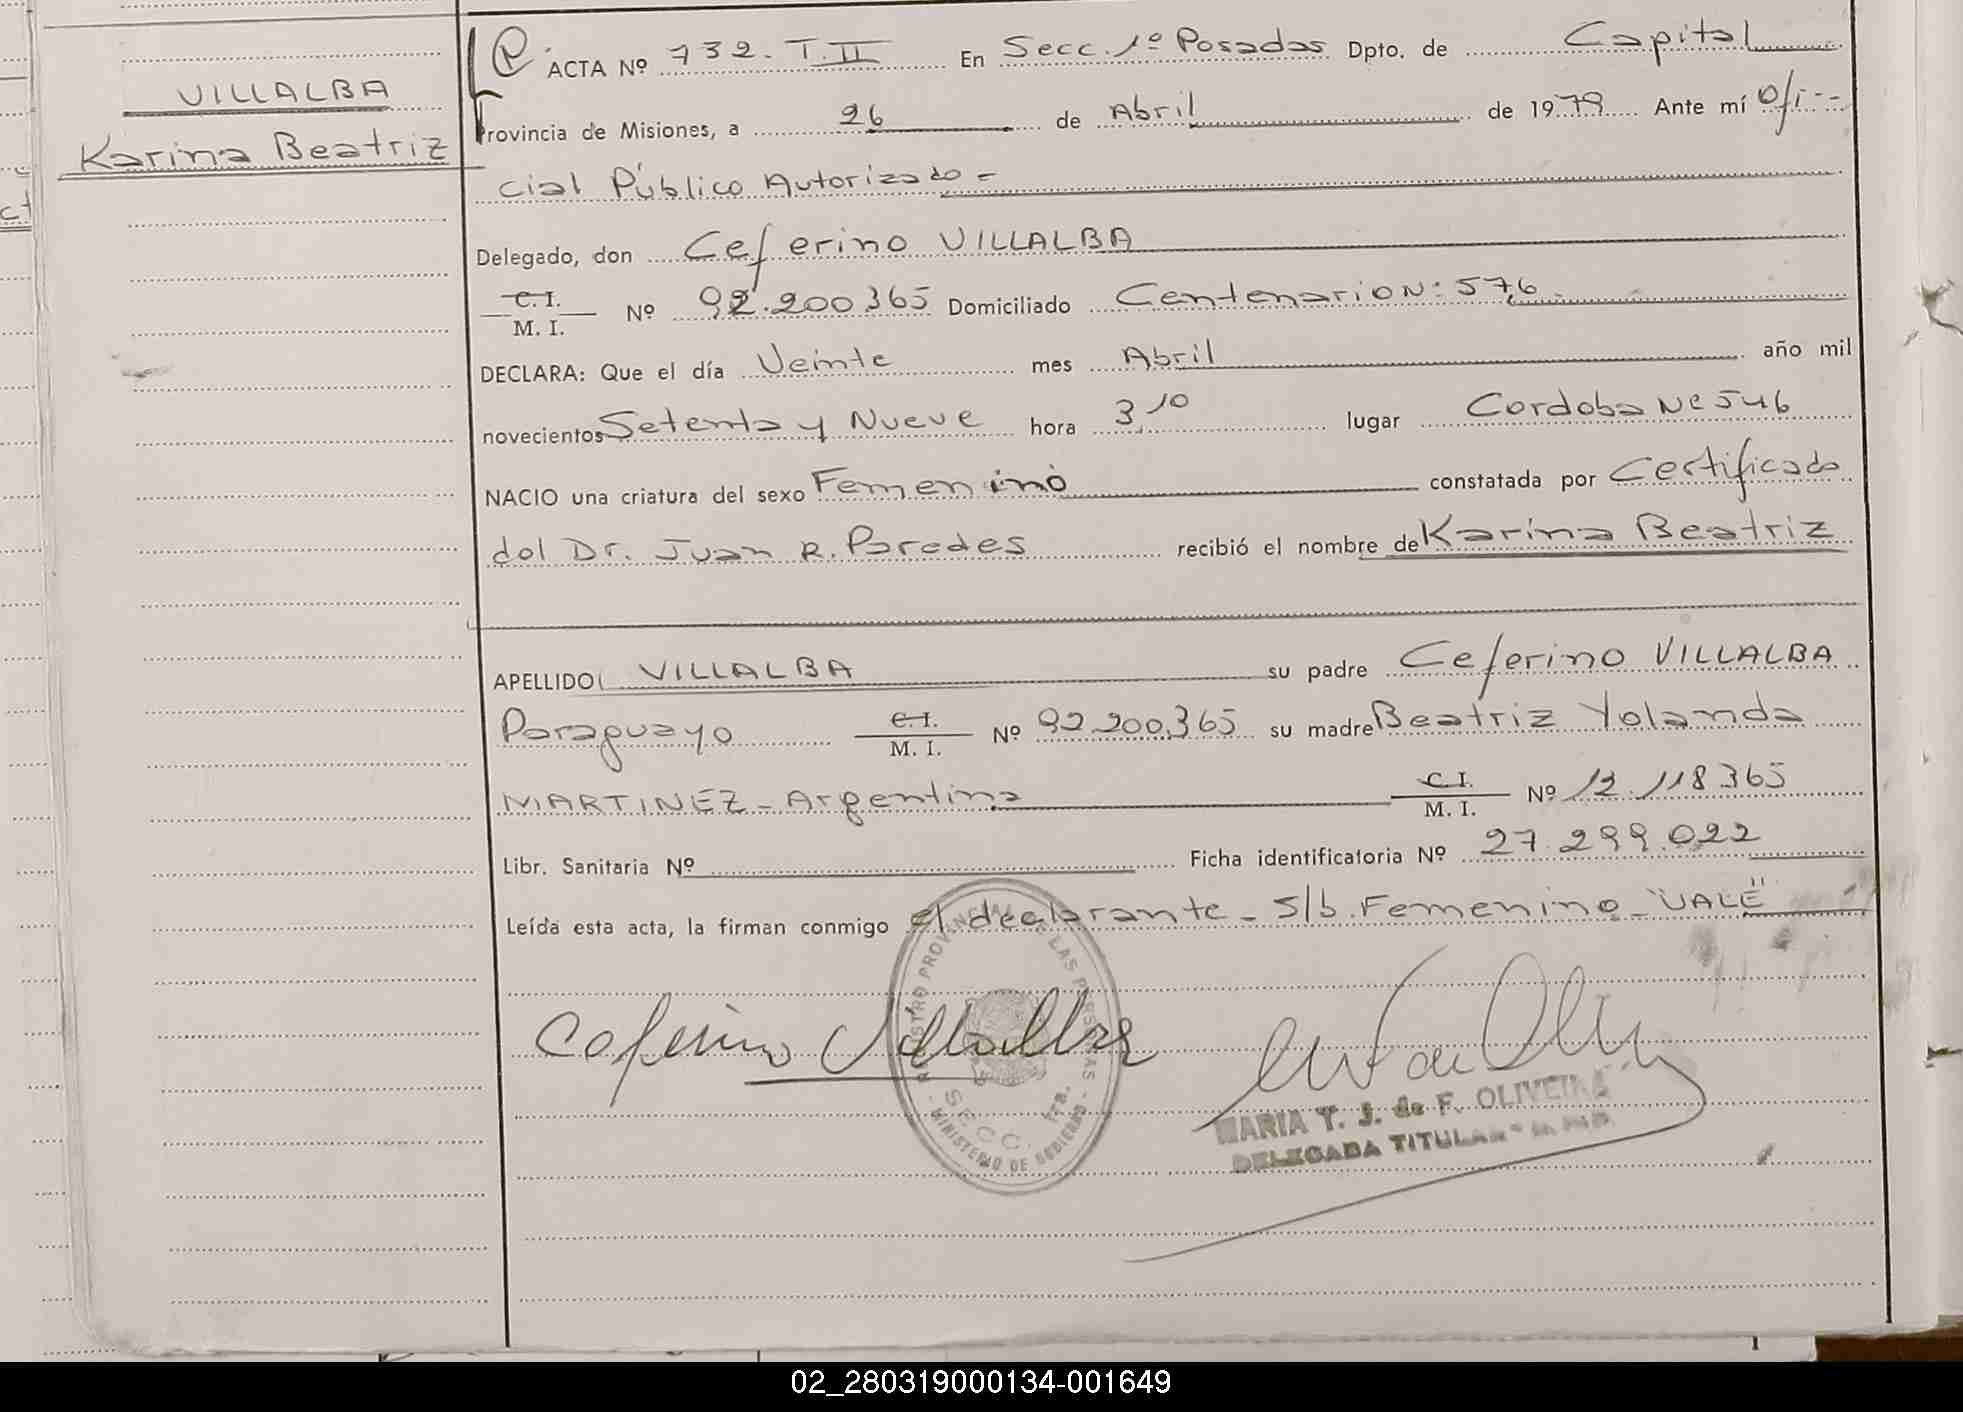 VILLALBA
Karina Beatriz
ACTA Nº 732. T. II En Secc. 1º Posadas Dpto. de Capital
Provincia de Misiones, a 26 de Abril de 1979 Ante mí Ofi--
cial Público Autorizado =
Delegado, don Ceferino VILLALBA
C. I.
M. I. Nº 92.200365 Domiciliado Centenario Nº 576
DECLARA: Que el día Veinte mes Abril año mil
novecientos Setenta y Nueve hora 3,10 lugar Cordoba Nº 546
NACIO una criatura del sexo Femenino constatada por Certificado
del Dr. Juan R. Paredes recibió el nombre de Karina Beatriz
APELLIDO VILLALBA su padre Ceferino VILLALBA
Paraguayo C. I. M. I. Nº 92.200.365 su madre Beatriz Yolanda
MARTINEZ - Argentina C. I. M. I. Nº 12.118365
Libr. Sanitaria Nº Ficha identificatoria Nº 27.299.022
Leída esta acta, la firman conmigo el declarante - S/b. Femenino - "VALE"
Ceferino Villalba
REGISTRO PROVINCIAL DE LAS PERSONAS
SECC. 1ra.
- MINISTERIO DE GOBIERNO -
MARIA T. J. de F. OLIVEIRA
DELEGADA TITULAR
02_280319000134-001649